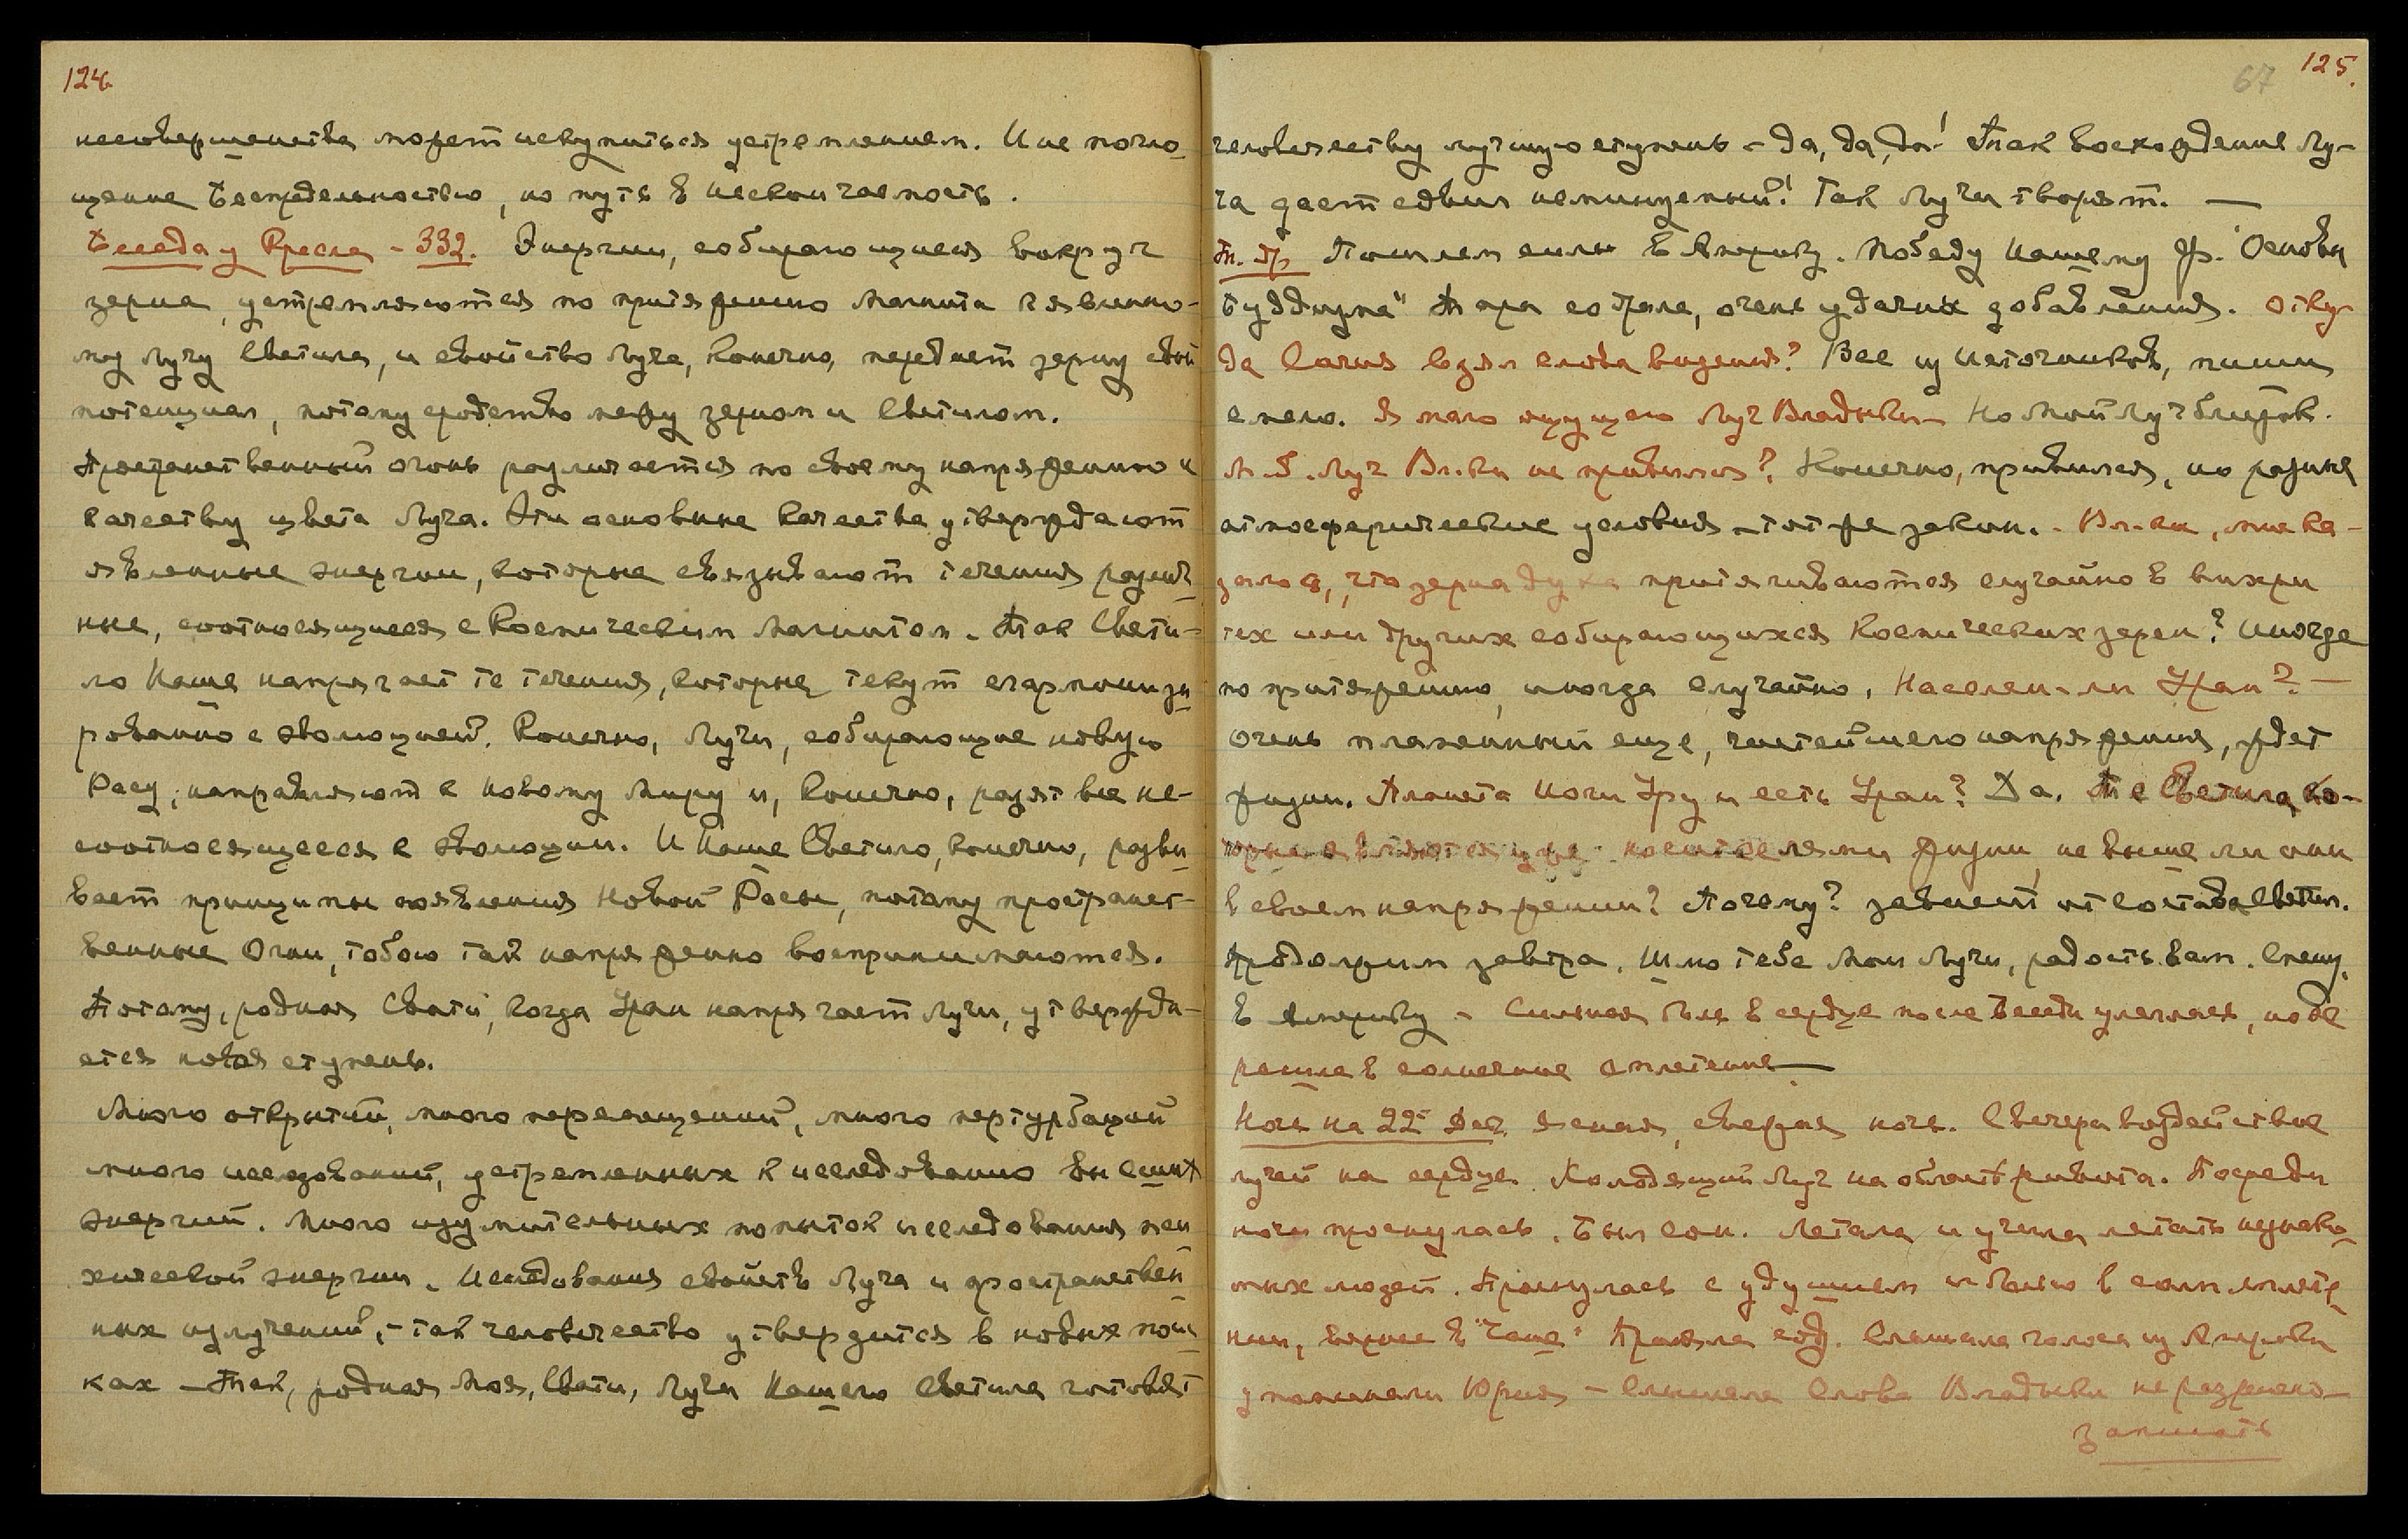 124.
несовершенства может искупиться устремлением. И не погло-
щение Беспредельностью, но путь в нескончаемость.
Беседа у Кресла - 332. Энергии, собирающиеся вокруг
зерна, устремляются по притяжению Магнита к явленно-
му Лучу Светила, и свойство Луча, конечно, передает зерну свой
потенциал, потому сродство между зерном и Светилом.
Пространственный огонь различается по своему напряжению и
качеству цвета Луча. Эти основные качества утверждают
явленные энергии, которые связывают течения различ-
ные, соотносящиеся с Космическим Магнитом. Так Свети-
ло Наше напрягает те течения, которые текут сгармонизи-
рованно с эволюцией. Конечно, Лучи, собирающие новую
Расу, направляют к новому Миру и, конечно, разят все не-
соотносящееся с эволюции. И Наше Светило, конечно, разви-
вает принципы появления Новой Расы, потому пространст-
венные Огни, тобою так напряженно воспринимаются.
Потому, родная Свати, когда Уран напрягает Лучи, утвержда-
ется новая ступень.
Много открытий, много перемещений, много пертурбаций
много исследований, устремленных к исследованию высших
энергий. Много изумительных попыток исследования пси-
хической энергии. Исследования свойств Луча и пространствен-
ных излучений, - так человечество утвердится в новых поис-
ках - Так, родная Моя, Свати, Лучи Нашего Светила готовят
67 125.
человечеству лучшую ступень - да, да, да! Так восхождение Лу-
ча дает сдвиг неминуемый! Так Лучи творят. —
Пошлем силы в Америку. Победу Нашему "Основы
Буддизма" очень удачных добавления. Отку-
да Саня взял слова видения? Все из Источников, пиши
смело. Я мало ощущаю Луч Владыки - Но Мой Луч близок.
М.б. Луч Вл-ки не привился? Конечно, привился, но разные
атмосферические условия - тот же закон. - Вл-ка, мне ка-
залось, что зерна духа притягиваются случайно в вихри
тех или других собирающихся Космических зерен? Иногда
по притяжению, иногда случайно. Населен-ли Уран? -
Очень пламенный еще, чистейшего напряжения, ждет
жизни. Планета Ночи Уру и есть Уран? Да. Те Светила ко-
торые являются уже носителями жизни, не выше ли они
в своем напряжении? Почему? зависит от состава Светил.
Продолжим завтра. Шлю тебе Мои Лучи, радость вам. Спешу
в Америку - Сильная боль в сердце после Беседы улеглась, но пе
решла в солнечное сплетение —
Ночь на 22е Дек. Ясная, свежая ночь. С вечера воздействие
лучей на сердце. Холодящий Луч на область живота. Посреди
ночи проснулась. Был сон. Летала и учила летать
людей. Проснулась с удушием и болью в солн. сплете-
нии, вернее в "Чаше" Приняла соду. Слышала голоса из Америки
упоминали Юрия - Слышала Слова Владыки не разрешено
записать